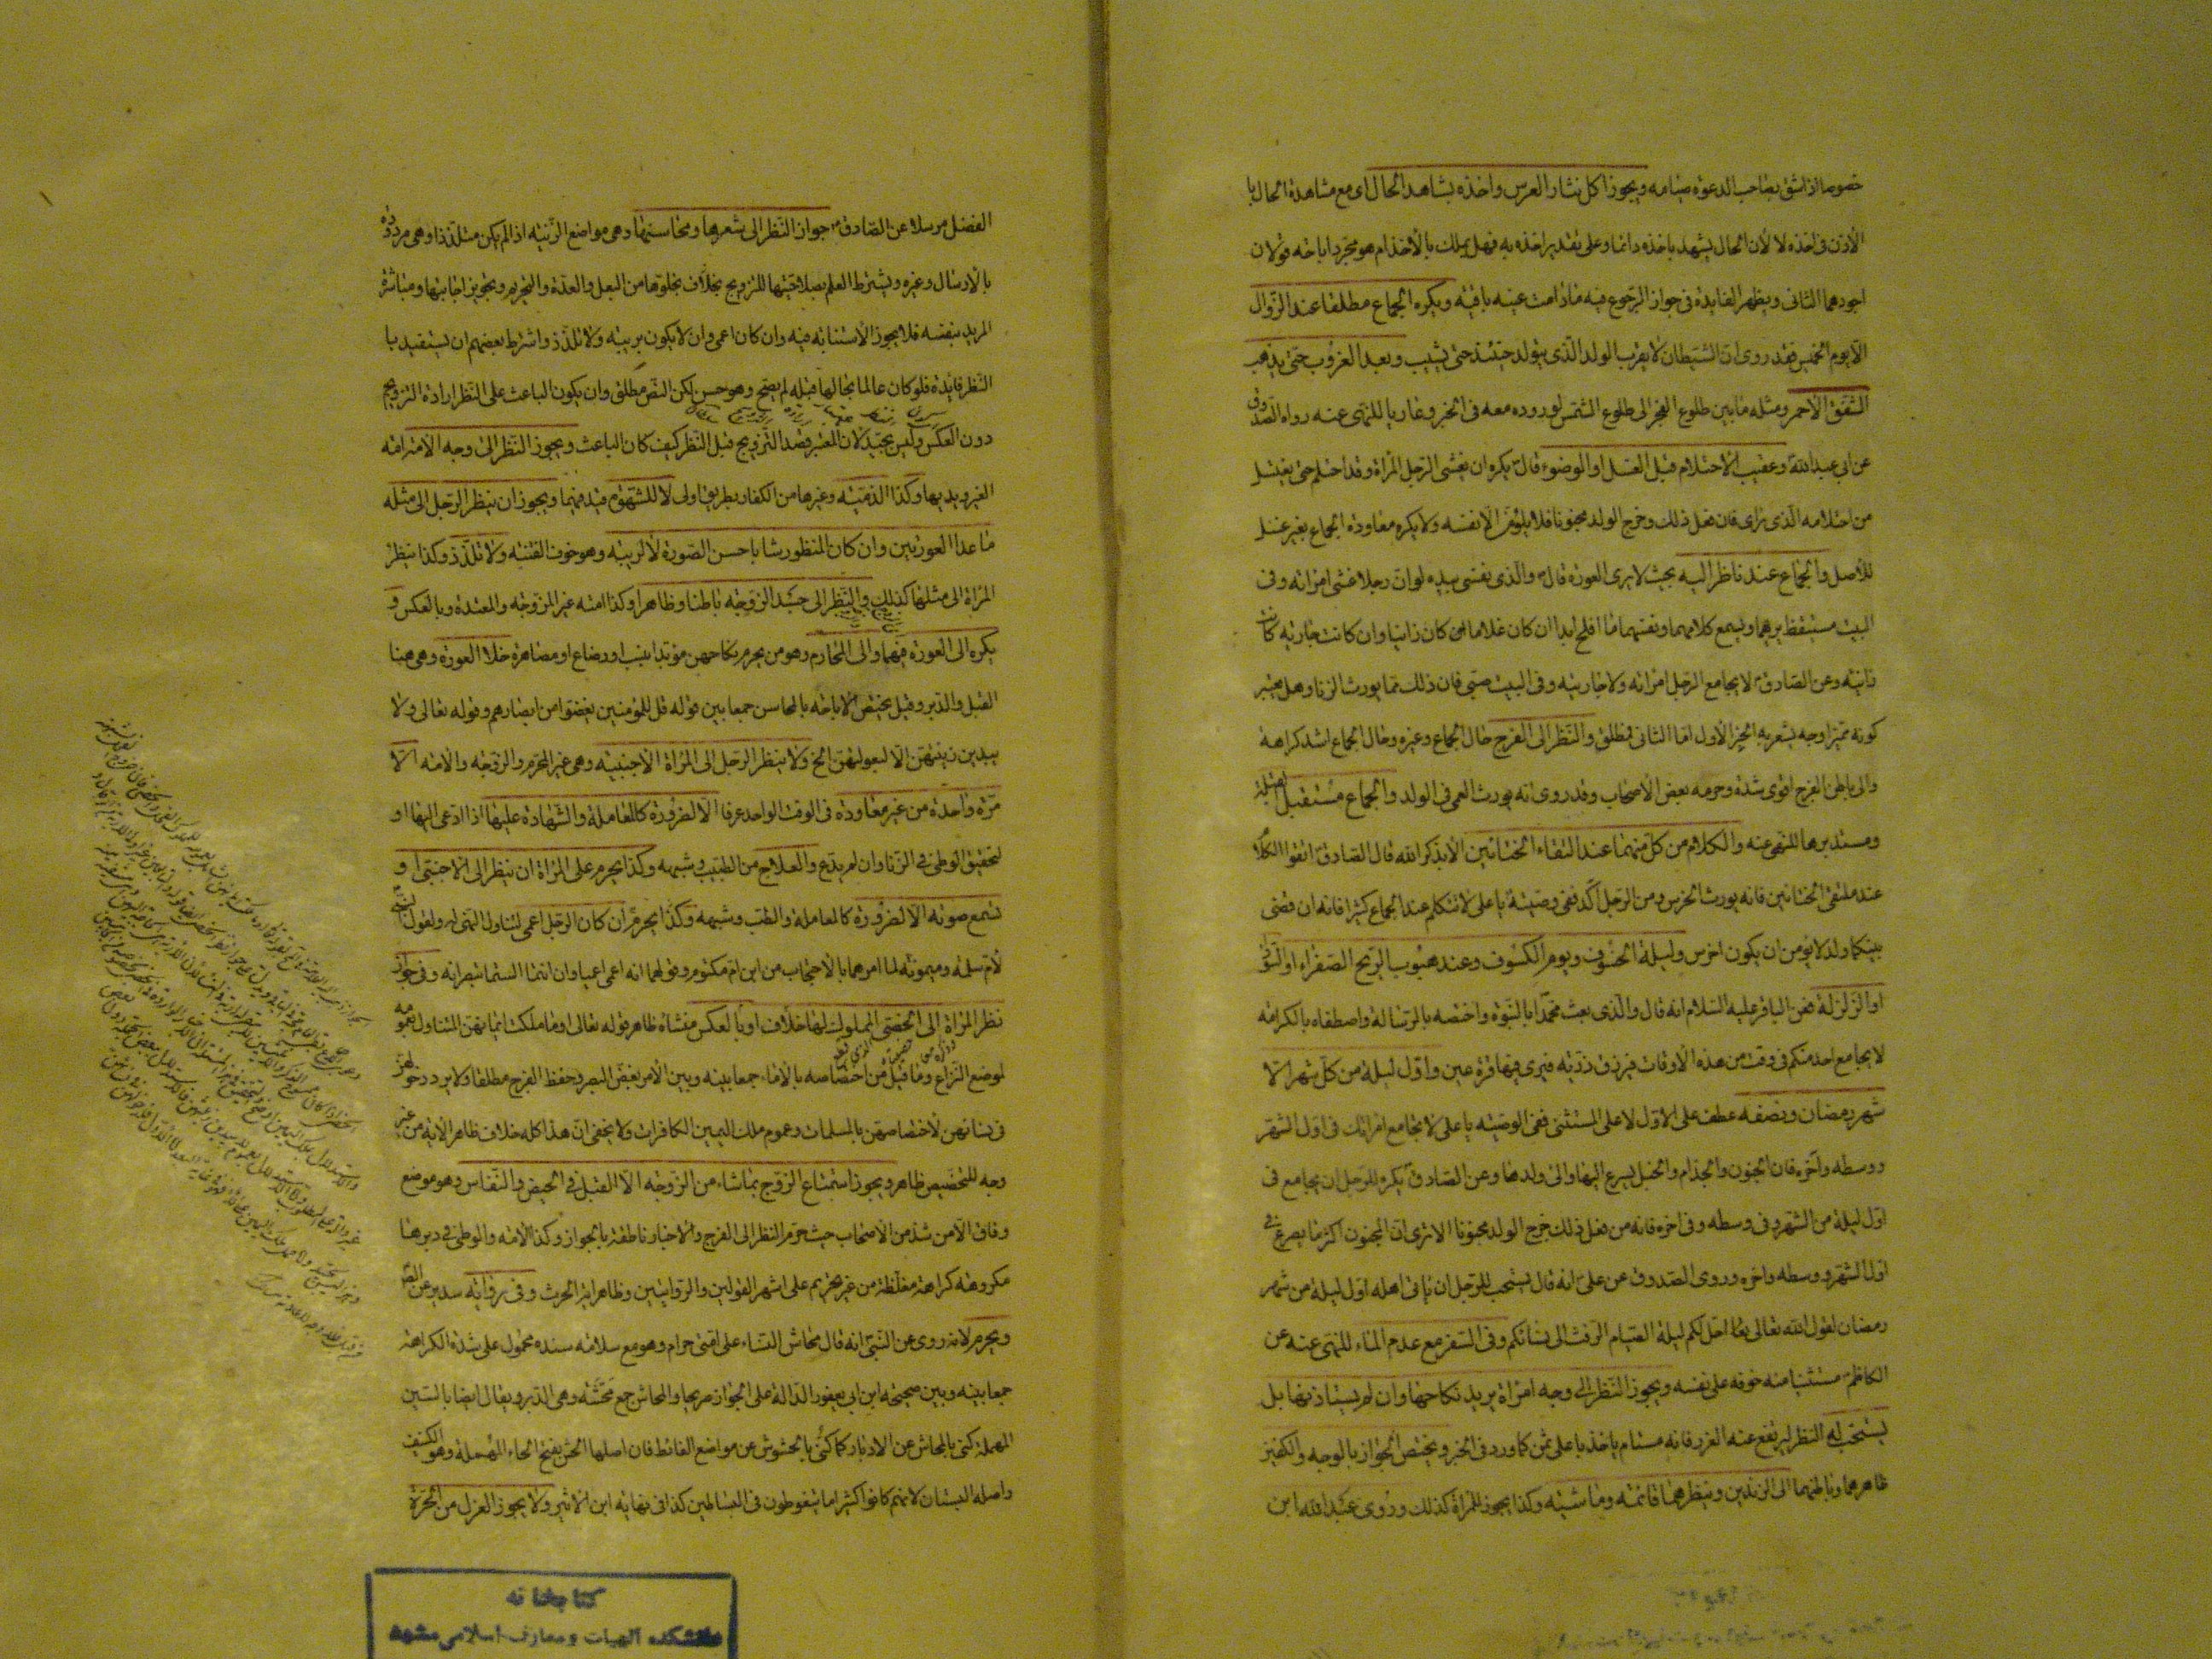 خصوصا اذا شق بصاحب الدعوة صيامه ويجوز اكل نثار العرس واخذه بشاهد الحال اى مع مشاهدة الحال با
لأذن فى اخذه لا لأن الحال يشهد باخذه دائما وعلى تقدير اخذه به فهل يملك بالأخذ ام هو مجرد اباحة قولان
اجودهما الثانى ويظهر الفايدة فى جواز الرجوع فيه مادامت عينه باقية ويكره الجماع مطلقا عند الزوال
الا يوم الخميس فقد روى ان الشيطان لا يقرب الولد الذى يتولد حينئذ حتى يشيب وبعد الغروب حتى يذهب
الشفق الأحمر ومثله ما بين طلوع الفجر الى طلوع الشمس لوروده معه فى الخبر وعاريا للنهى عنه رواه الصدوق
عن ابى عبد الله وعقيب الاحتلام قبل الغسل او الوضوء قال يكره ان يغشى الرجل المرأة وقد احتلم حتى يغتسل
من احتلامه الذى راى فان فعل ذلك وخرج الولد مجنونا فلا يلومن الا نفسه ولا يكره معاودة الجماع بغير غسل
للأصل والجماع عند ناظر اليه بحيث لا يرى العورة قال والذى نفسى بيده لو ان رجلا غشى امرأته وفى
البيت مستيقظ يريهما ويسمع كلامهما ونفسهما ما افلح ابدا ان كان غلاما كان زانيا وان كانت جارية كانت
زانية وعن الصادق لا يجامع الرجل امرأته ولا جاريته وفى البيت صبى فان ذلك مما يورث الزنا وهل يعتبر
كونه مميزا وجه يشعر به الخبر الأول اما الثانى فمطلق والنظر الى الفرج حال الجماع وغيره وحال الجماع اشد كراهة
والى باطن الفرج اقوى شدة وحرمه بعض الأصحاب وقد روى انه يورث العمى فى الولد والجماع مستقبل القبلة
ومستدبرها للنهى عنه والكلام من كل منهما عند التقاء الختانين الا بذكر الله قال الصادق اتقوا الكلام
عند ملتقى الختانين فانه يورث الخرس ومن الرجل آكد ففى وصية يا على لا تتكلم عند الجماع كثيرا فانه ان قضى
بينكما ولد لا يؤمن ان يكون اخرس وليلة الخسوف ويوم الكسوف وعند هبوب الريح الصفراء او السوداء
او الزلزلة فعن الباقر عليه السلام انه قال والذى بعث محمدا بالنبوة واختصه بالرسالة واصطفاه بالكرامة
لا يجامع احد منكم فى وقت من هذه الأوقات فيرزق ذرية فيرى فيها قرة عين واول ليلة من كل شهر الا
شهر رمضان ونصفه عطف على الأول لا على المستثنى ففى الوصية يا على لا تجامع امرأتك فى اول الشهر
ووسطه وآخره فان الجنون والجذام والخبل يسرع اليها والى ولدها وعن الصادق يكره للرجل ان يجامع فى
اول ليلة من الشهر وفى وسطه وفى اخره فانه من فعل ذلك خرج الولد مجنونا الا ترى ان المجنون اكثر ما يصرع فى
اول الشهر ووسطه واخره وروى الصدوق عن على انه قال يستحب للرجل ان يأتى اهله اول ليلة من شهر
رمضان لقول الله تعالى احل لكم ليلة الصيام الرفث الى نسائكم وفى السفر مع عدم الماء للنهى عنه عن
الكاظم مستثنيا منه خوفه على نفسه ويجوز النظر الى وجه امرأة يريد نكاحها وان لم يستأذنها بل
يستحب له النظر ليرتفع عنه الغرر فانه مستام ياخذ باعلى ثمن كما ورد فى الخبر ويختص الجواز بالوجه والكفين
ظاهرهما وباطنهما الى الزندين وينظرهما قائمة وماشية وكذا يجوز للمرأة كذلك وروى عبد الله ابن
الفضل مرسلا عن الصادق جواز النظر الى شعرها ومحاسنها وهى مواضع الزينة اذا لم يكن متلذذا وهى مردودة
بالارسال وغيره ويشترط العلم بصلاحيتها للتزويج بخلوها من البعل والعدة والتحريم وتجويز اجابتها ومباشرة
المريد بنفسه فلا يجوز الاستنابة فيه وان كان اعمى وان لا يكون بريبة ولا تلذذ واشترط بعضهم ان يستفيد با
لنظر فايدة فلو كان عالما بحالها قبله لم يصح وهو حسن لكن النص مطلق وان يكون الباعث على النظر ارادة التزويج
دون العكس وليس بجيد لأن المعتبر قصد التزويج قبل النظر كيف كان الباعث ويجوز النظر الى وجه الأمة امة
الغير ويديها وكذا الذمية وغيرها من الكفار بطريق اولى لا لشهوة قيد فيهما ويجوز ان ينظر الرجل الى مثله
ما عدا العورتين وان كان المنظور شابا حسن الصورة لا لريبة وهو خوف الفتنة ولا تلذذ وكذا تنظر
المرأة الى مثلها كذلك والنظر الى جسد الزوجة باطنا وظاهرا وكذا امته غير المزوجة والمعتدة وبالعكس و
يكره الى العورة فيهما والى المحارم وهو من يحرم نكاحهن مؤبدا بنسب او رضاع او مصاهرة خلا العورة وهى هنا
القبل والدبر وقيل يختص الاباحة بالمحاسن جمعا بين قوله قل للمؤمنين يغضوا من ابصارهم وقوله تعالى ولا
يبدين زينتهن الا لبعولتهن الخ ولا ينظر الرجل الى المرأة الأجنبية وهى غير المحرم والزوجة والأمة الا
مرة واحدة من غير معاودة فى الوقت الواحد عرفا الا لضرورة كالمعاملة والشهادة عليها اذا ادعى اليها او
لتحقيق الوطى فى الزنا وان لم يدع والعلاج من الطبيب وشبهه وكذا يحرم على المرأة ان تنظر الى الأجنبى او
تسمع صوته الا لضرورة كالمعاملة والطب وشبهه وكذا يحرم ان كان الرجل اعمى لتناول النهى له ولقول النبى
لأم سلمة وميمونة لما امرهما بالاحتجاب من ابن ام مكتوم وقولهما انه اعمى اعميا وان انتما الستما تبصرانه وفى جواز
نظر المرأة الى الخصى المملوك لها خلاف او بالعكس منشأه ظاهر قوله تعالى او ما ملكت ايمانهن المتناول بعمومه
لموضع النزاع وما قيل من اختصاصه بالاماء جمعا بينه وبين الأمر بغض البصر وحفظ الفرج مطلقا ولا يرد دخولهن
فى نسائهن لأختصاصهن بالمسلمات وعموم ملك اليمين الكافرات ولا يخفى ان هذا كله خلاف ظاهر الأية من غير
وجه للتخصيص ظاهر ويجوز استمتاع الزوج بما شاء من الزوجة الا القبل فى الحيض والنفاس وهو موضع
وفاق الا من شذ من الأصحاب حيث حرم النظر الى الفرج والأخبار ناطقة بالجواز وكذا الأمة والوطى فى دبرها
مكروهة كراهة مغلظة من غير تحريم على اشهر القولين والروايتين وظاهر اية الحرث وفى رواية سدير عن الصادق
ويحرم لأنه روى عن النبى انه قال محاش النساء على امتى حرام وهو مع سلامة سنده محمول على شدة الكراهة
جمعا بينه وبين صحيحة ابن ابى يعفور الدالة على الجواز صريحا والمحاش جمع محشة وهى الدبر ويقال ايضا بالسين
المهملة كنى بالمحاش عن الادبار كما كنى بالحشوش عن مواضع الغائط فان اصلها الحش بفتح الحاء المهملة وهو الكنيف
واصله البستان لأنهم كانوا كثيرا ما يتغوطون فى البساتين كذا فى نهاية ابن الأثير ولا يجوز العزل من الحرة
كتابخانه
دانشكده الهيات و معارف اسلامى مشهد